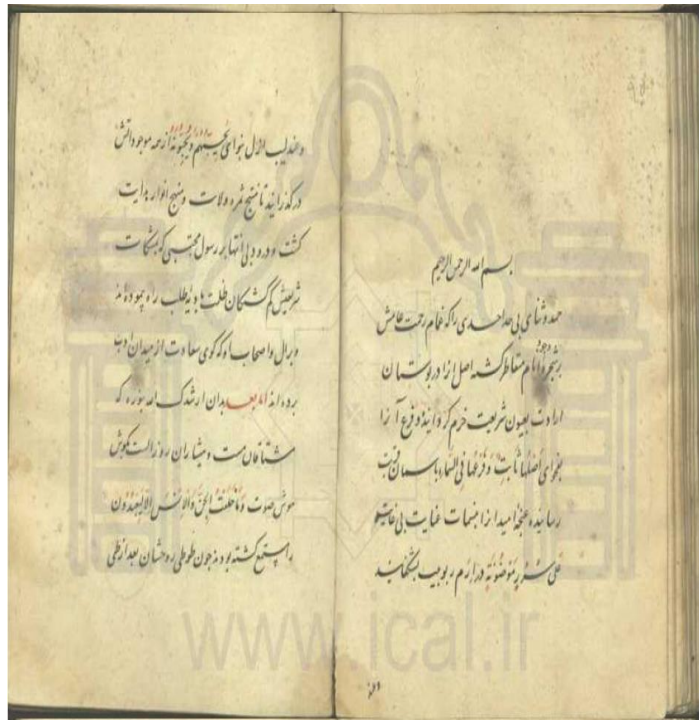 بسم الله الرحمن الرحیم
حمد و ثنای بی حد احدی را که غمام رحمت عامش
بر شجره وجود انام متقاطر گشته اصل آنرا در بوستان
ارادت بعیون شریعت خرم گردانید و فرع آنرا
بفحوای اصلها ثابت و فرعها فی السماء باسمان قربت
رسانیده غنچه امید از نسمات عنایت بی غایت
علی سرر موضونه در ارم ربوبیت بشکفانید
و عندلیب ازل بنوای یحبهم و یحبونه از همه موجوداتش
در گذرانید تا منتج ثمره ولایت و منهج انوار هدایت
گشت و درود بی انتها بر رسول مجتبی که بمشکات
شریعتش گم گشتگان ظلمت بادیه طلب راه پیموده اند
و بر آل و اصحاب او که گوی سعادت از میدان ادب
برده اند اما بعد بدان ارشدک الله بنوره که
مشتاقان مست و هشیاران روز الست بگوش
هوش صوت و ما خلقت الجن والانس الا لیعبدون
را مستمع گشته بودند چون طوطی روحشان بعد از طی
www.ical.ir